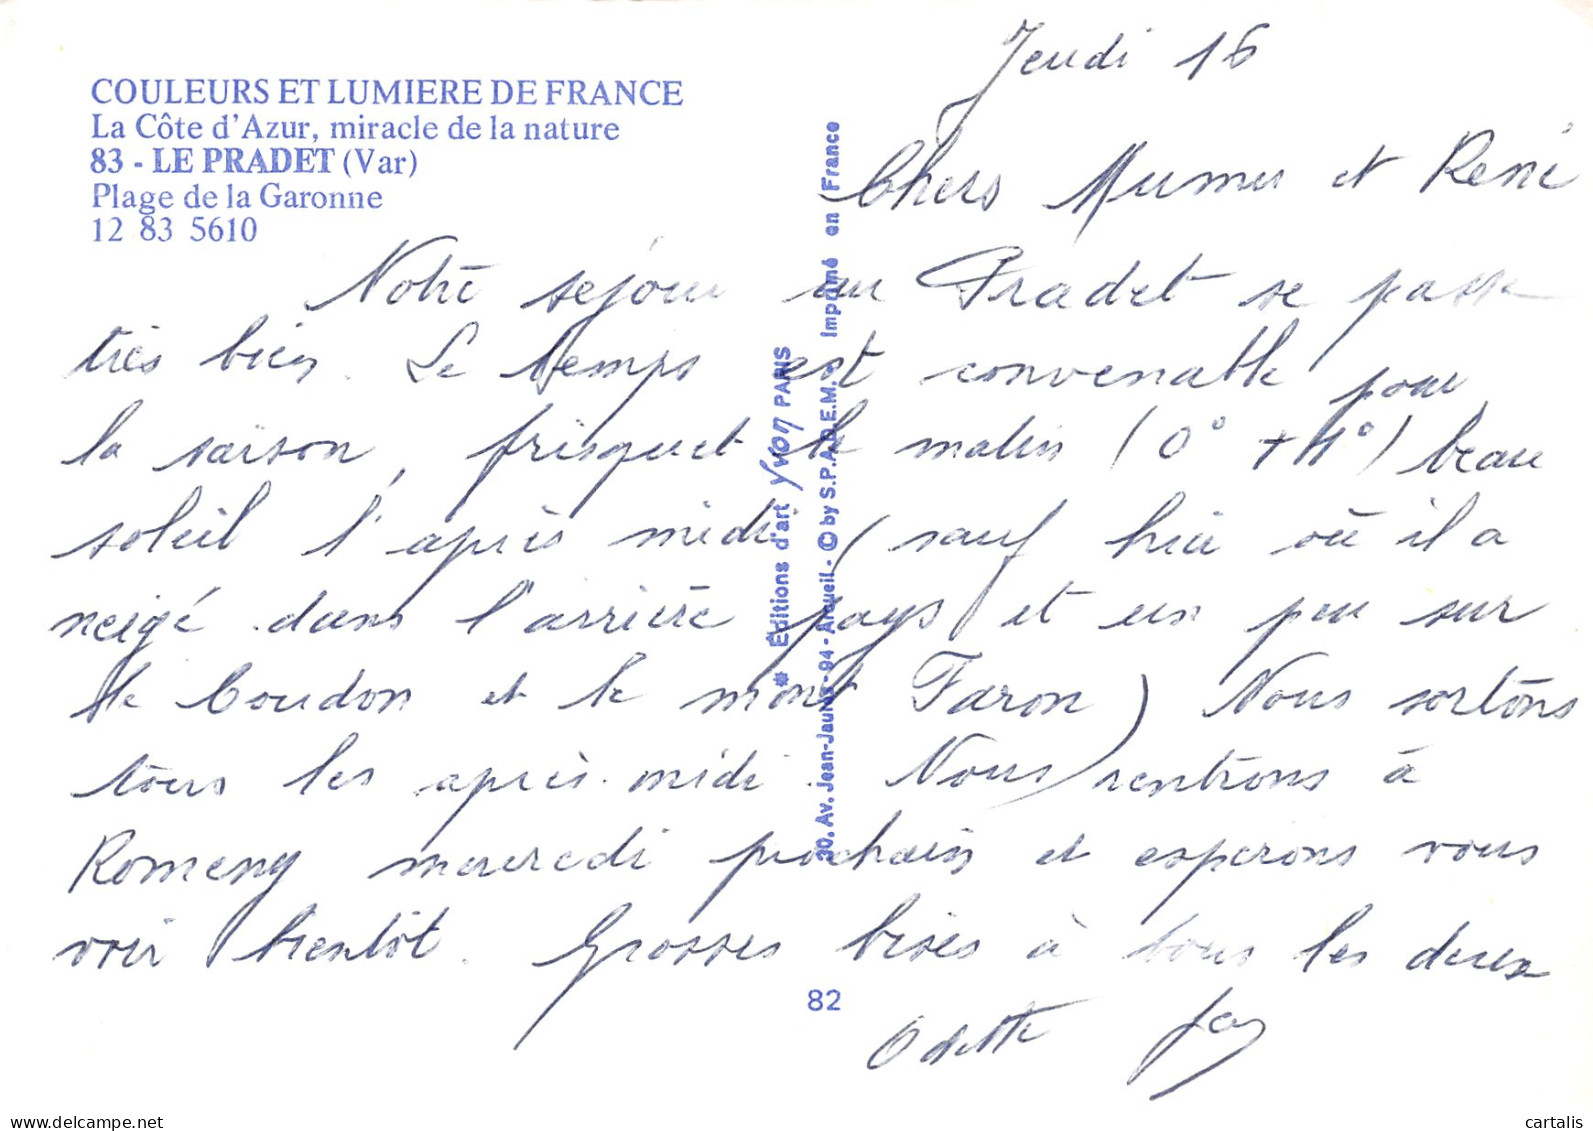 COULEURS ET LUMIERE DE FRANCE
La Côte d'Azur, miracle de la nature
83 - LE PRADET (Var)
Plage de la Garonne
12 83 5610
Jeudi 16
Chers Mumu et René
Notre séjour au Pradet se passe
très bien. Le temps est convenable pour
la saison, frisquet le matin (0° +4°) beau
soleil l'après midi (sauf hier où il a
neigé dans l'arrière pays et un peu sur
le Coudon et le mont Faron) Nous sortons
tous les après-midi. Nous rentrons à
Romeny mercredi prochain et espérons vous
voir bientôt. Grosses bises à tous les deux
Odette
* Éditions d'art Yvon PARIS
30, Av. Jean-Jaurès - 94 - Arcueil - © by S.P.A.D.E.M. - imprimé en France
82
delcampe.net
cartalis